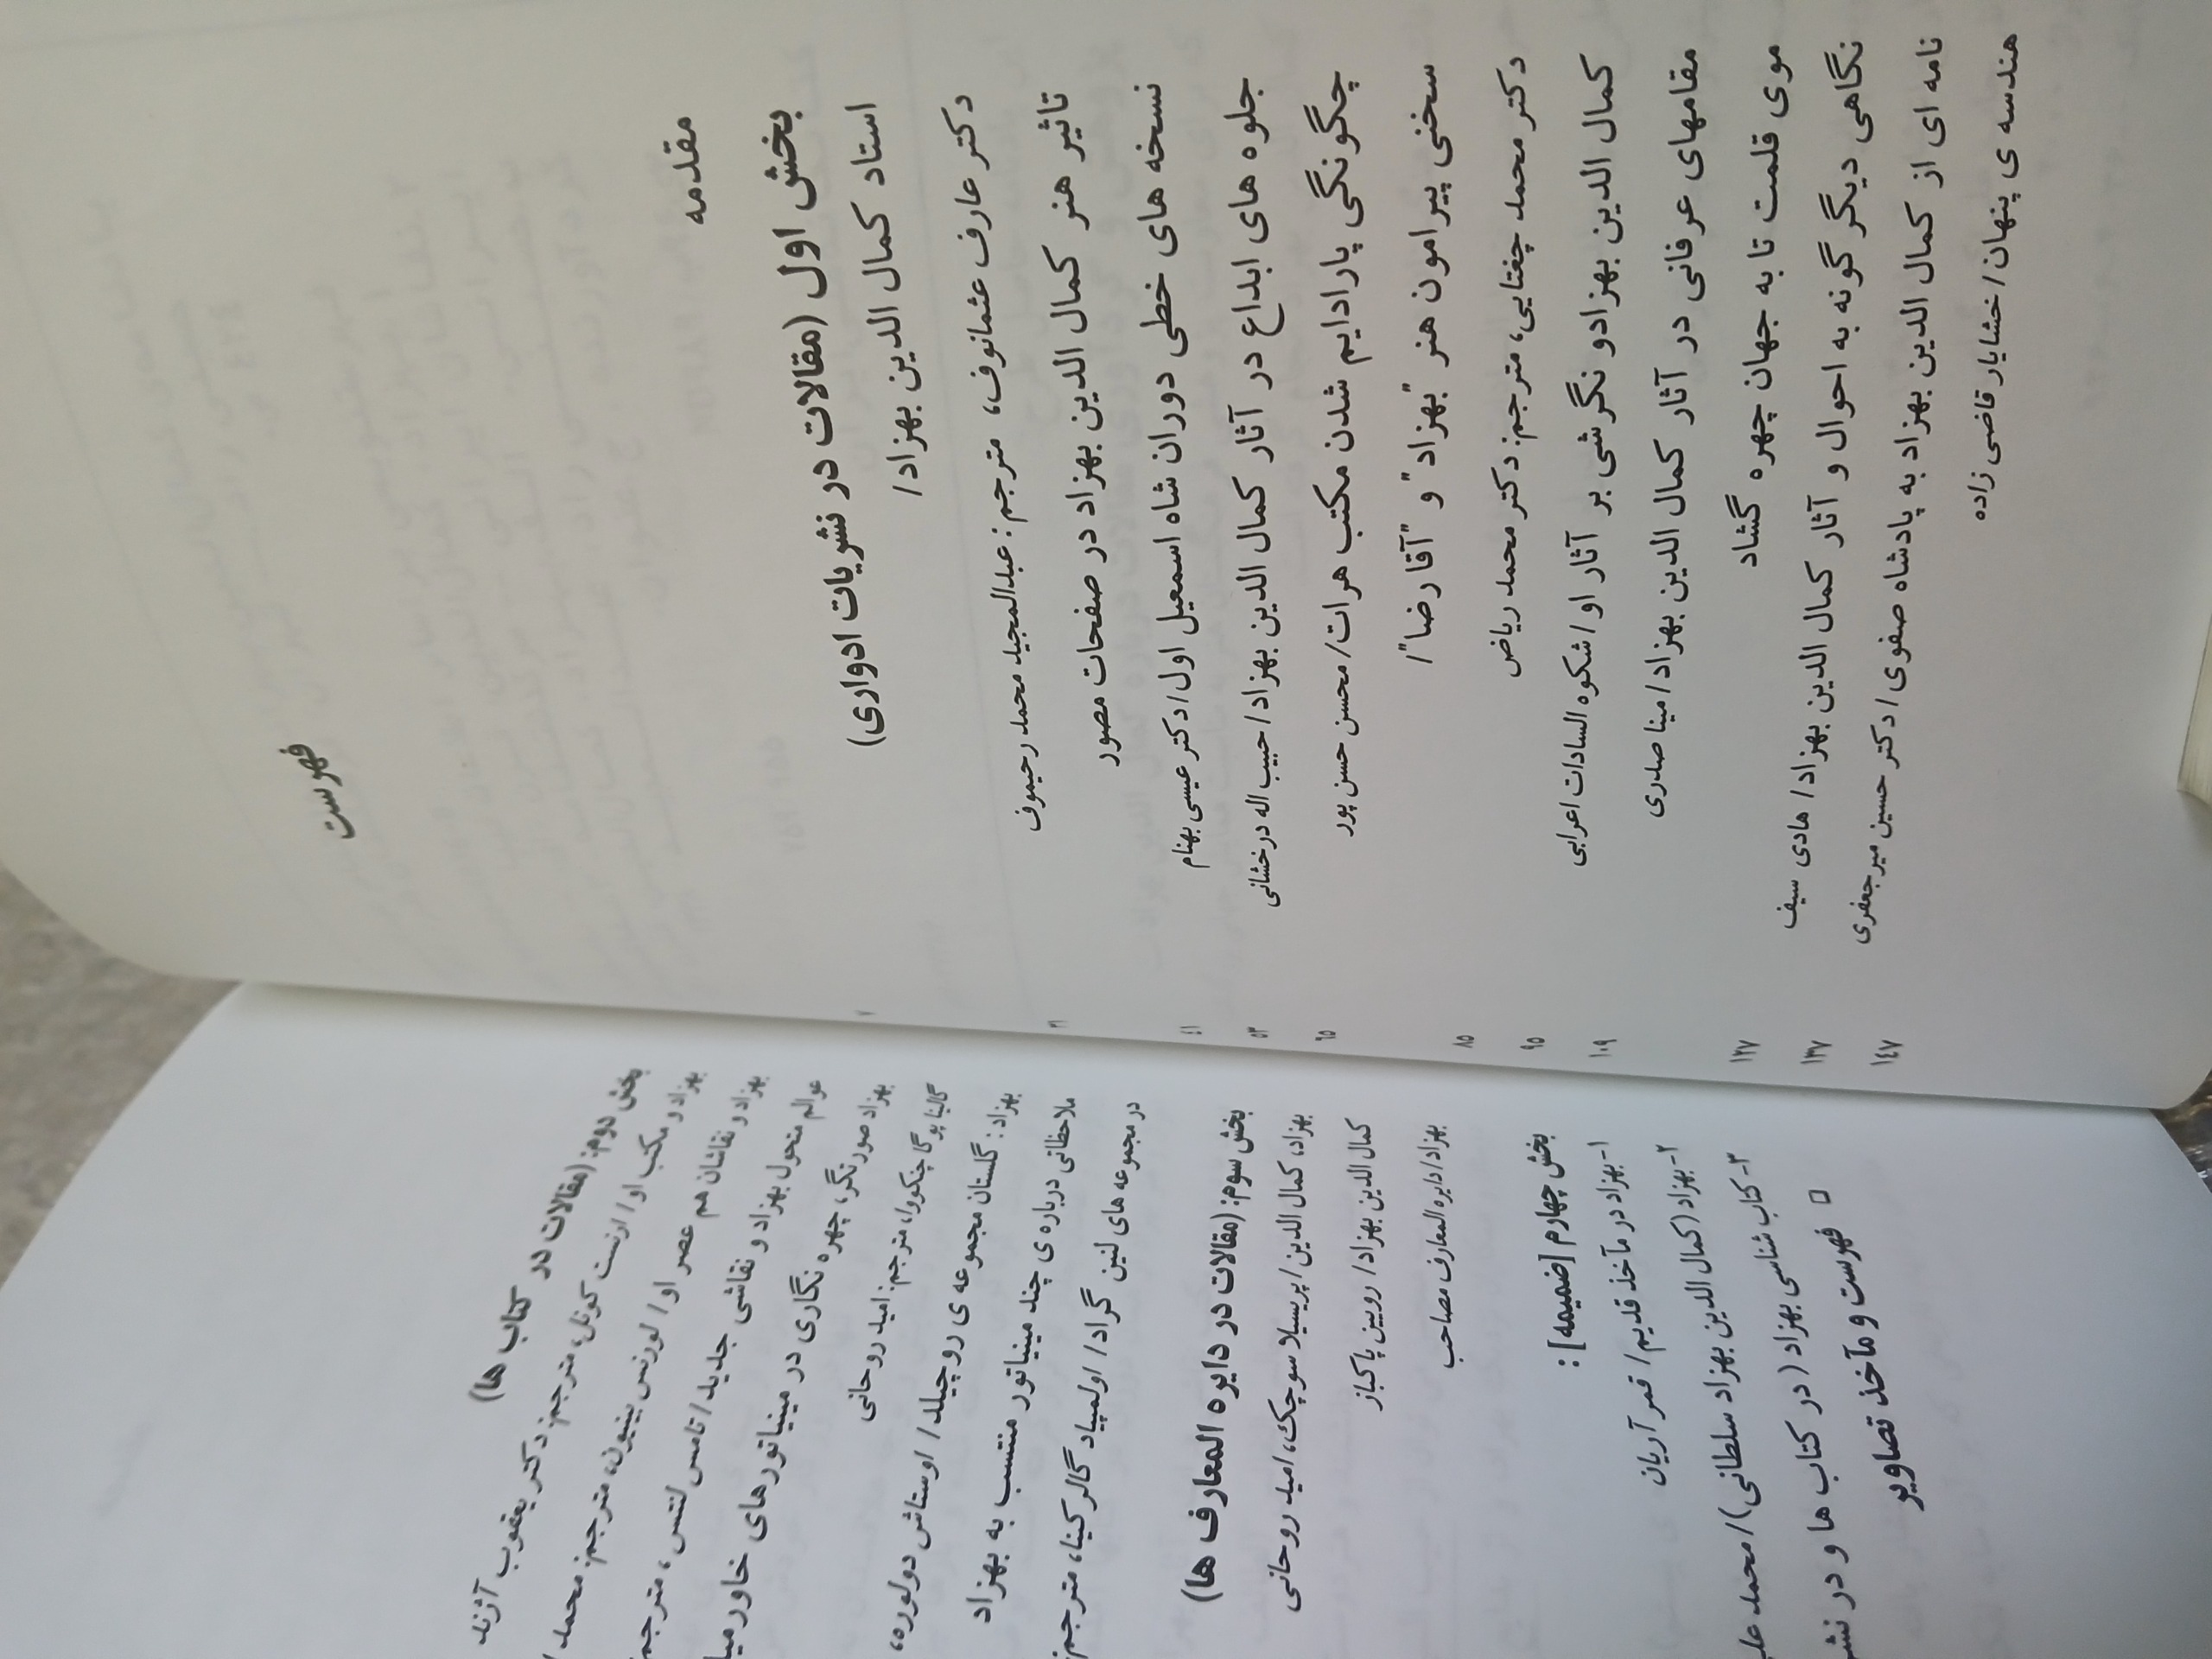 فهرست
مقدمه
بخش اول (مقالات در نشریات ادواری)
استاد کمال الدین بهزاد/
دکتر عارف عثمانوف، مترجم: عبدالمجید محمد رحیموف
تاثیر هنر کمال الدین بهزاد در صفحات مصور
نسخه های خطی دوران شاه اسمعیل اول/دکتر عیسی بهنام
جلوه های ابداع در آثار کمال الدین بهزاد/حبیب اله درخشانی
چگونگی پارادایم شدن مکتب هرات/محسن حسن پور
سخنی پیرامون هنر "بهزاد" و "آقارضا"/
دکتر محمد چغتایی، مترجم: دکتر محمد ریاض
کمال الدین بهزادو نگرشی بر آثار او/شکوه السادات اعرابی
مقامهای عرفانی در آثار کمال الدین بهزاد/مینا صدری
موی قلمت تا به جهان چهره گشاد
نگاهی دیگر گونه به احوال و آثار کمال الدین بهزاد/ هادی سیف
نامه ای از کمال الدین بهزاد به پادشاه صفوی/دکتر حسین میرجعفری
هندسه ی پنهان/خشایار قاضی زاده
۷
۳۱
٤١
٥٣
٨٥
٩٥
١٠٩
١٢٧
١٣٧
١٤٧
بخش دوم: (مقالات در کتاب ها)
بهزاد و مکتب او/ ارنست کونل، مترجم: دکتر یعقوب آژند
بهزاد و نقاشان هم عصر او/ لورنس بینیون، مترجم: محمد
عوالم متحول بهزاد و نقاشی جدید/تامس لنتس، مترجم:
بهزاد صورتگر، چهره نگاری در مینیاتورهای
گالینا پوگاچنکووا، مترجم: امید روحانی
بهزاد: گلستان مجموعه ی روچیلد/ اوستاش دولوره،
ملاحظاتی درباره ی چند مینیاتور منتسب به بهزاد
در مجموعه های لنین گراد/ اولمپیاد گالرکینا، مترجم:
بخش سوم: (مقالات در دایره المعارف ها)
بهزاد، کمال الدین/پریسیلا سوچک، امید روحانی
کمال الدین بهزاد/ رویین پاکباز
بهزاد/دایره المعارف مصاحب
بخش چهارم [ضمیمه]:
۱-بهزاد در مآخذ قدیم/ قمر آریان
۲-بهزاد(کمال الدین بهزاد سلطانی)/محمد
۳-کتاب شناسی بهزاد (در کتاب ها و در
فهرست و مآخذ تصاویر